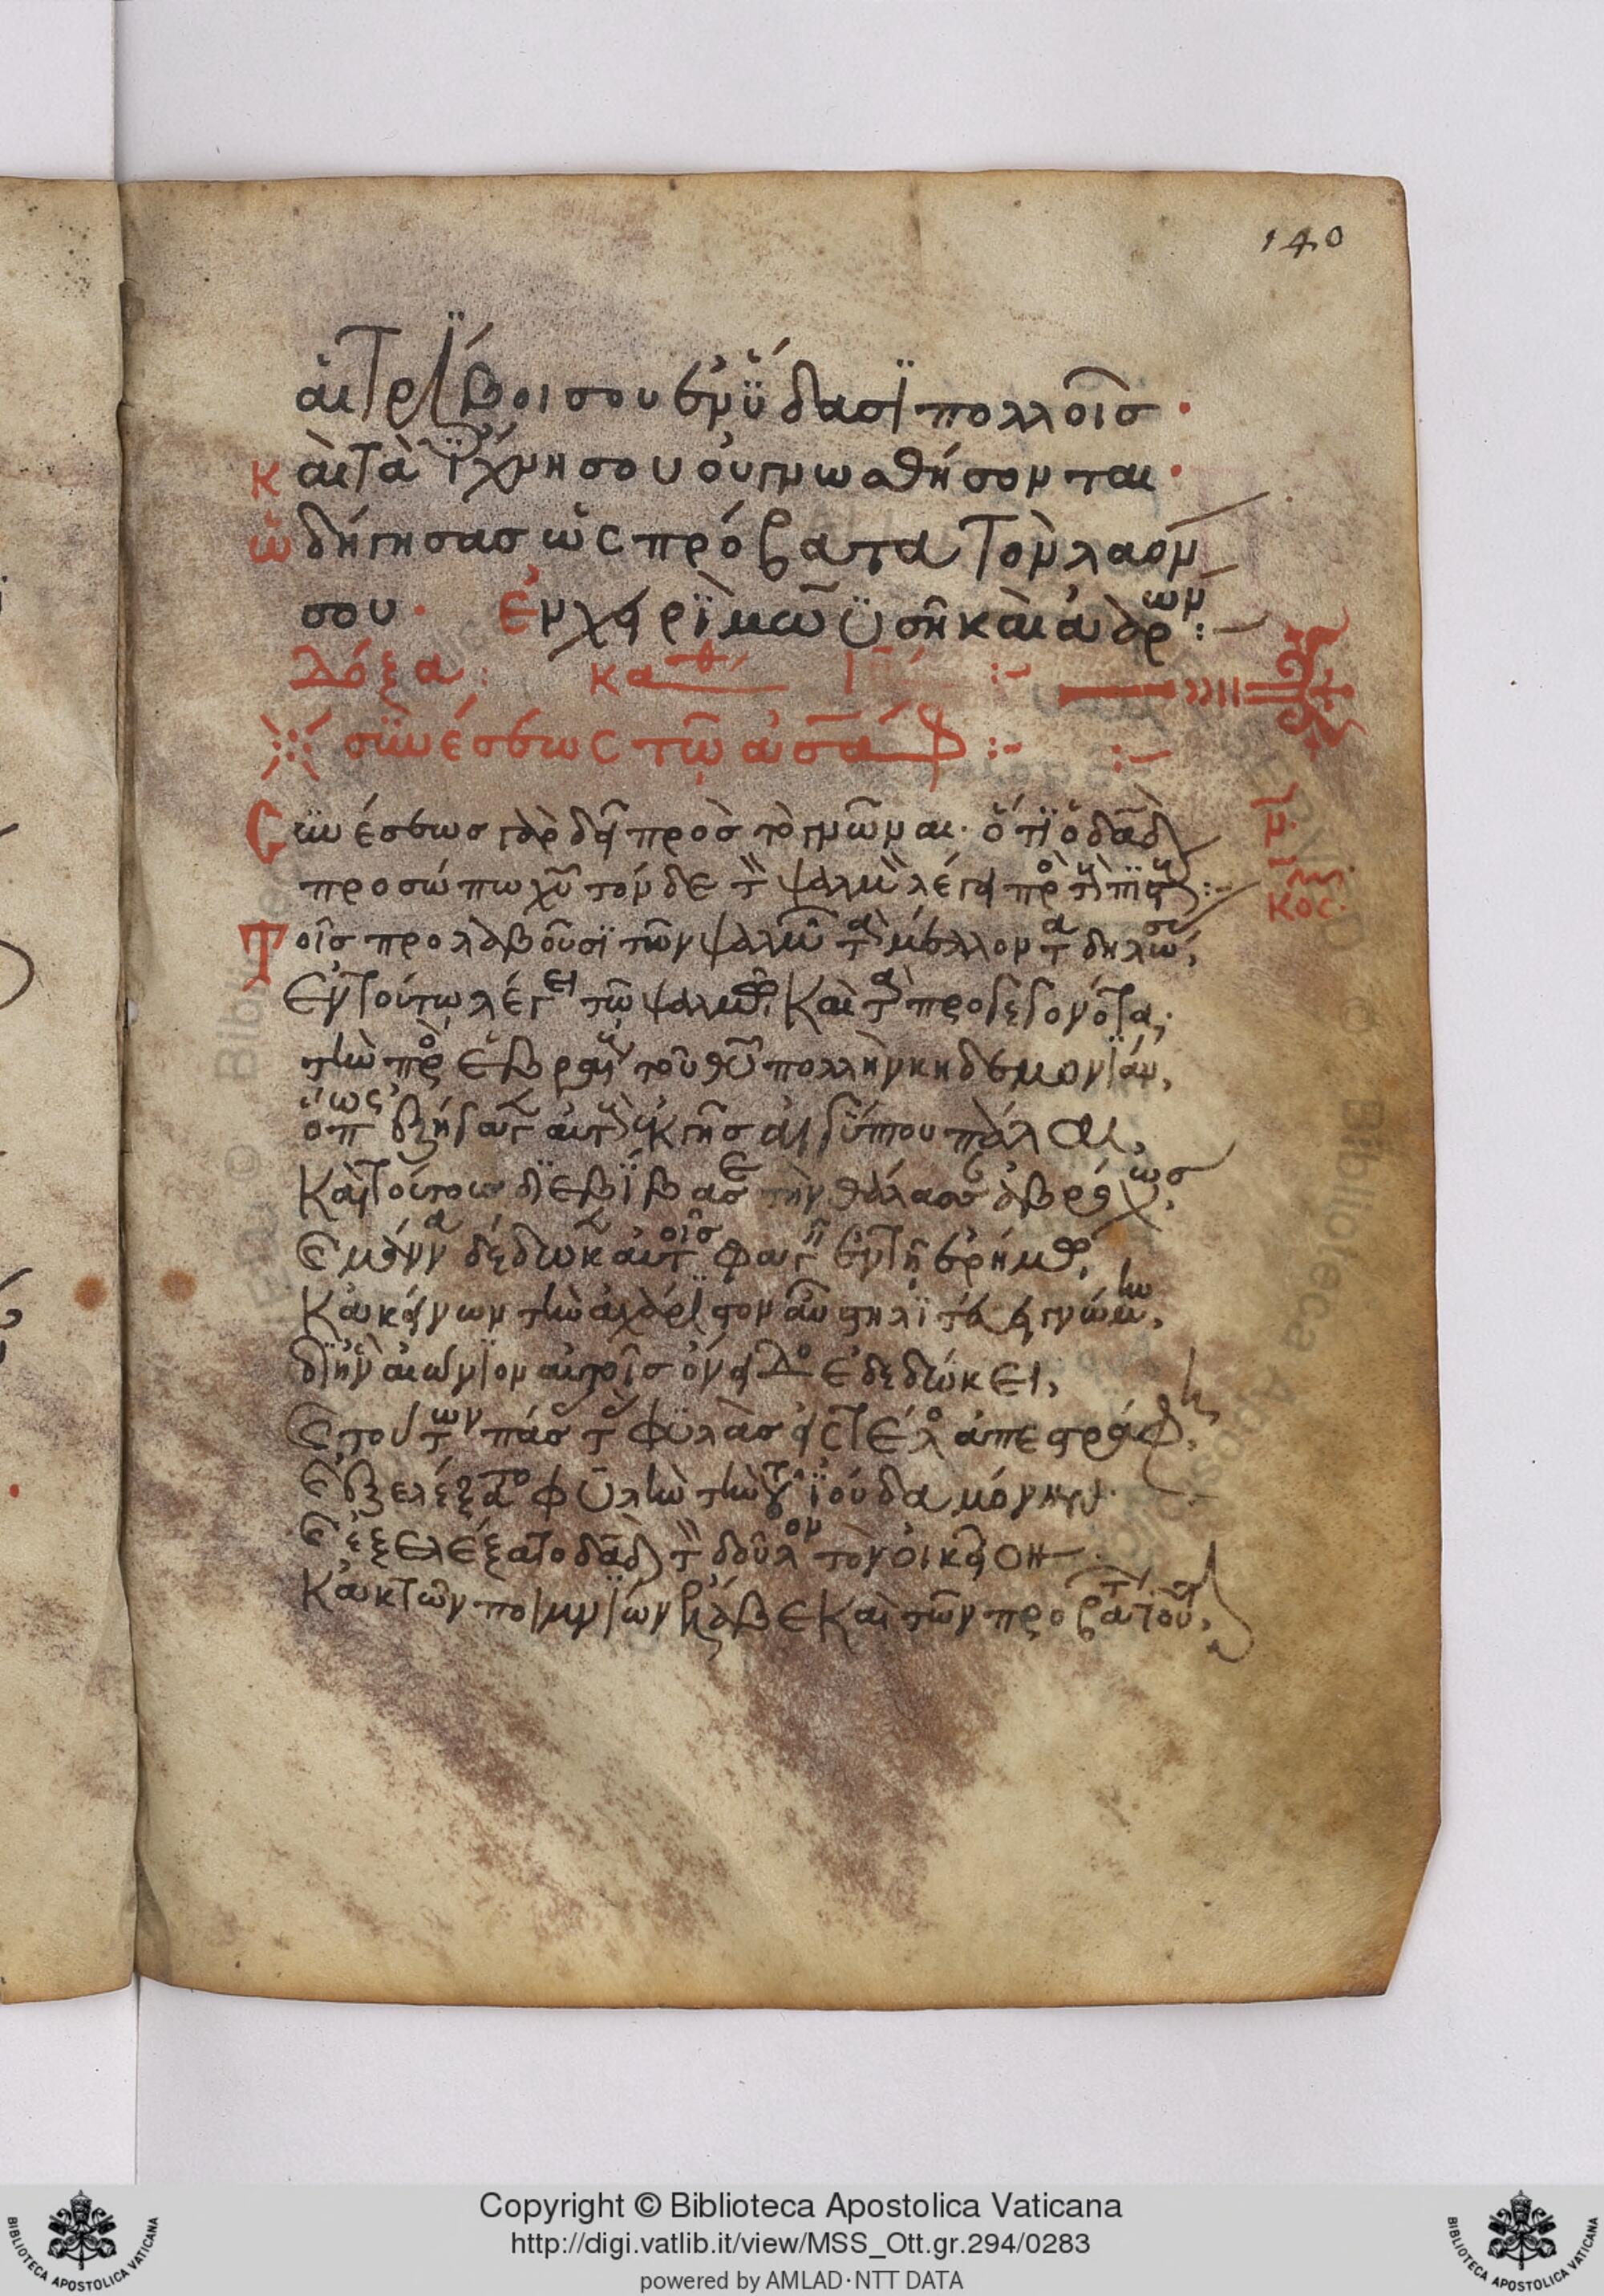 140
αι τρίβοι σου εν ὕδασι πολλοῖς·
καὶ τὰ ἴχνη σου οὐ γνωσθήσονται·
ὡδήγησας ὡς πρόβατα τὸν λαόν
σου· ἐν χειρὶ μωϋσῆ καὶ ἀαρών:
Δόξα: καθ
συνέσεως τῷ ἀσάφ:
Συνέσεως γὰρ δεῖ πρὸς τὸ γνῶναι· ὅτι ὁ δαδ
προσώπω χυ τόνδε τ ψαλμ λέγει πρ
Τοῖς προλαβοῦσι τῶν ψαλμῶ τὰ μέλλοντα δηλώσας,
Ἐν τούτω λέγει τῶ ψαλμῶ καὶ τὰ προγεγονότα,
τὴν πρὸς ἑβραίους τοῦ θυ πολλὴν κηδεμονίαν,
ὅπως ἐξήγαγεν αὐτοὺς ἐκ γῆς αἰγύπτου πάλαι,
Καὶ τούτους διεβίβασε τὴν θάλασσαν ἀβρόχως,
Ε μάννα δέδωκεν αὐτοῖς φαγεῖν ἐν τῆ ἐρήμω,
Κἀκείνων τὴν ἀχάριστον ἀνστηλιτεύει γνώμην,
δι' ἣν αἰώνιον αὐτοῖς ὄνειδος ἐδεδώκει,
φυλὰς ἀπεστράφη,
Ε ἐξελέξατο φυλὴν τὴν ἰούδα μόνην
Ε ἐξελέξατο δαδ τ δοῦλον τὸν οἰκεῖον
Κἀκ τῶν ποιμνίων ἔλαβε καὶ τῶν προβάτ
κος
Copyright © Biblioteca Apostolica Vaticana
http://digi.vatlib.it/view/MSS_Ott.gr.294/0283
powered by AMLAD·NTT DATA
BIBLIOTECA APOSTOLICA VATICANA
BIBLIOTECA APOSTOLICA VATICANA